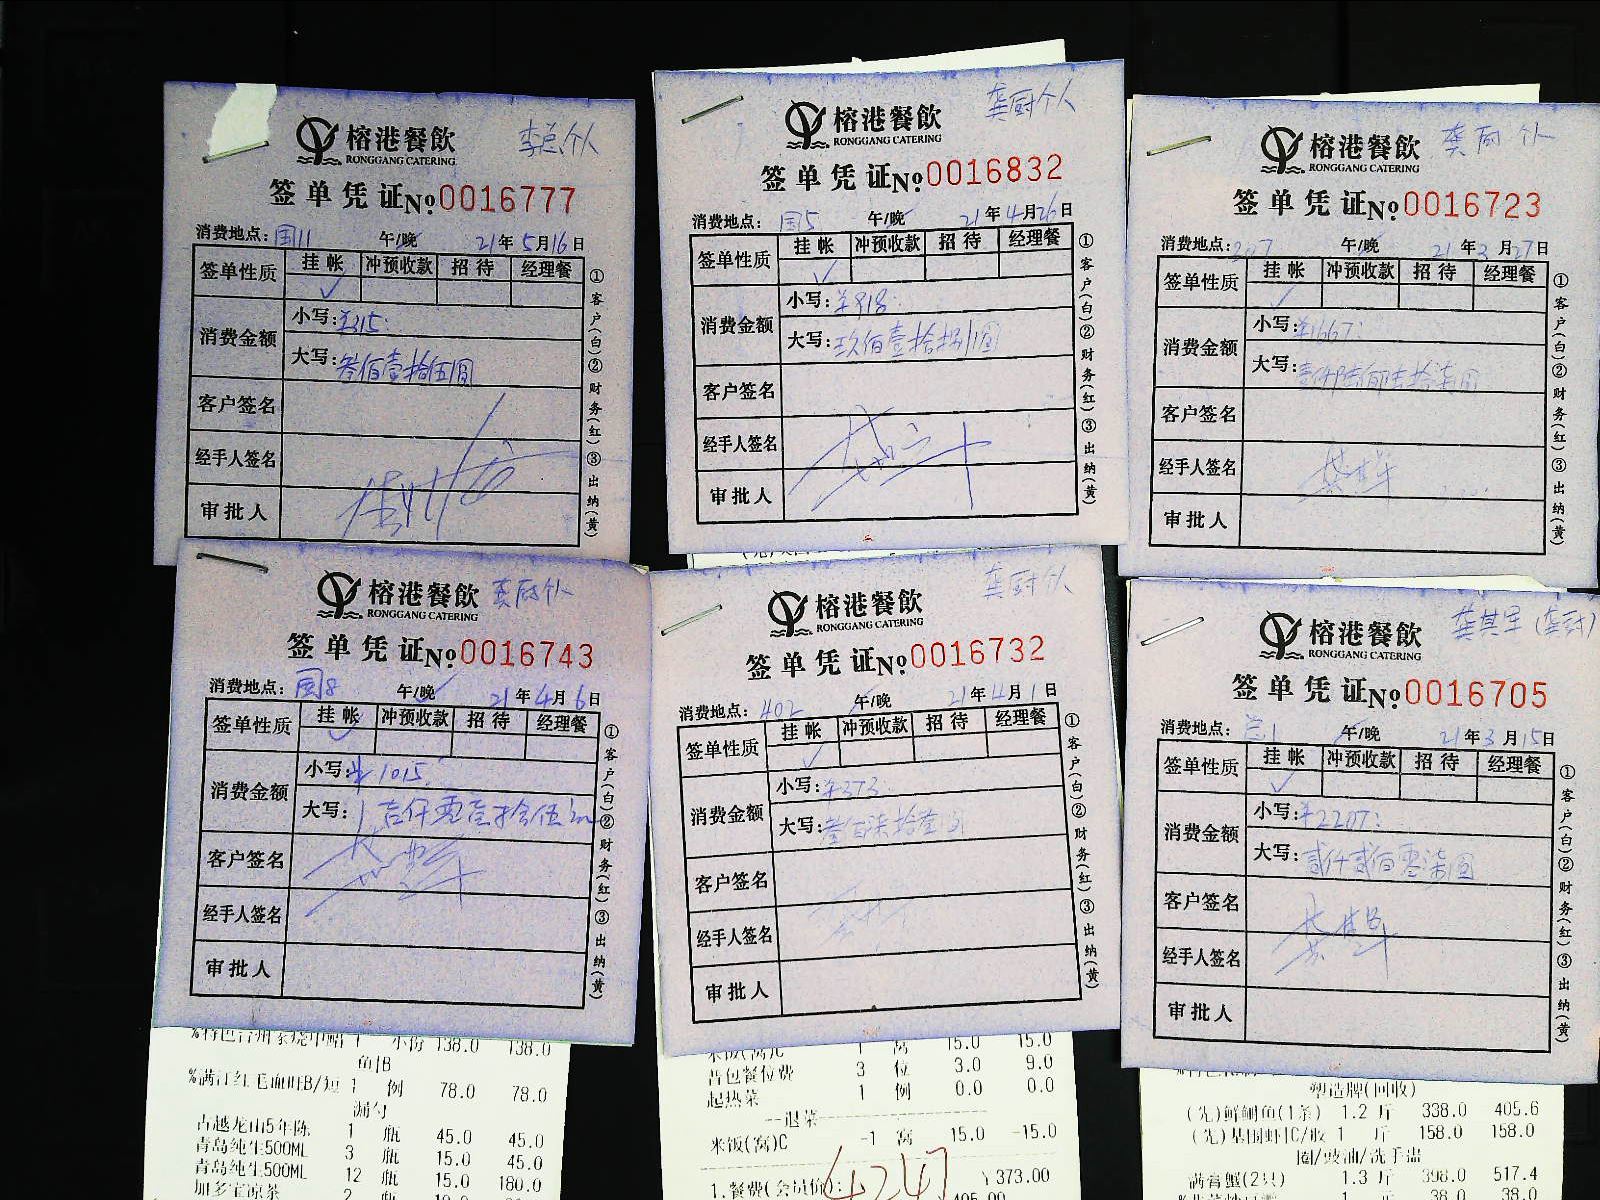 李总个人
榕港餐飲
RONGGANG CATERING
签单凭证№0016777
消费地点：国11 午/晚 21年5月16日
签单性质 挂帐 冲预收款 招待 经理餐
消费金额
小写：¥315.
大写：叁佰壹拾伍圆
客户签名
经手人签名
审批人
①客户(白)②财务(红)③出纳(黄)
龚厨个人
榕港餐飲
RONGGANG CATERING
签单凭证№0016832
消费地点：国5 午/晚 21年4月26日
签单性质 挂帐 冲预收款 招待 经理餐
消费金额
小写：¥918.
大写：玖佰壹拾捌圆
客户签名
经手人签名
审批人
①客户(白)②财务(红)③出纳(黄)
龚厨个人
榕港餐飲
RONGGANG CATERING
签单凭证№0016723
消费地点：207 午/晚 21年3月27日
签单性质 挂帐 冲预收款 招待 经理餐
消费金额
小写：¥1667.
大写：壹仟陆佰陆拾柒圆
客户签名
经手人签名
审批人
①客户(白)②财务(红)③出纳(黄)
龚厨个人
榕港餐飲
RONGGANG CATERING
签单凭证№0016743
消费地点：国8 午/晚 21年4月6日
签单性质 挂帐 冲预收款 招待 经理餐
消费金额
小写：¥1015
大写：壹仟零壹拾伍元
客户签名
经手人签名
审批人
①客户(白)②财务(红)③出纳(黄)
鱼)B
1 例 78.0 78.0
漏勺
古越龙山5年陈 1 瓶 45.0 45.0
青岛纯生500ML 3 瓶 15.0 45.0
青岛纯生500ML 12 瓶 15.0 180.0
加多宝凉茶 2
龚厨个人
榕港餐飲
RONGGANG CATERING
签单凭证№0016732
消费地点：402 午/晚 21年4月1日
签单性质 挂帐 冲预收款 招待 经理餐
消费金额
小写：¥373.
大写：叁佰柒拾叁圆
客户签名
经手人签名
审批人
①客户(白)②财务(红)③出纳(黄)
米饭(窝)C 1 窝 15.0 15.0
昔包餐位费 3 位 3.0 9.0
起热菜 1 例 0.0 0.0
--退菜
米饭(窝)C -1 窝 15.0 -15.0
1.餐费(会员价): ¥373.00
4247
龚其军(龚厨)
榕港餐飲
RONGGANG CATERING
签单凭证№0016705
消费地点：兰1 午/晚 21年3月15日
签单性质 挂帐 冲预收款 招待 经理餐
消费金额
小写：¥2207.
大写：贰仟贰佰零柒圆
客户签名
龚其军
经手人签名
审批人
①客户(白)②财务(红)③出纳(黄)
塑造牌(回收)
(先)鲜鮰鱼(1条) 1.2 斤 338.0 405.6
(先)基围虾)C/敀 1 斤 158.0 158.0
圈/豉油/洗手盅
满膏蟹(2只) 1.3 斤 398.0 517.4
38.0 38.0